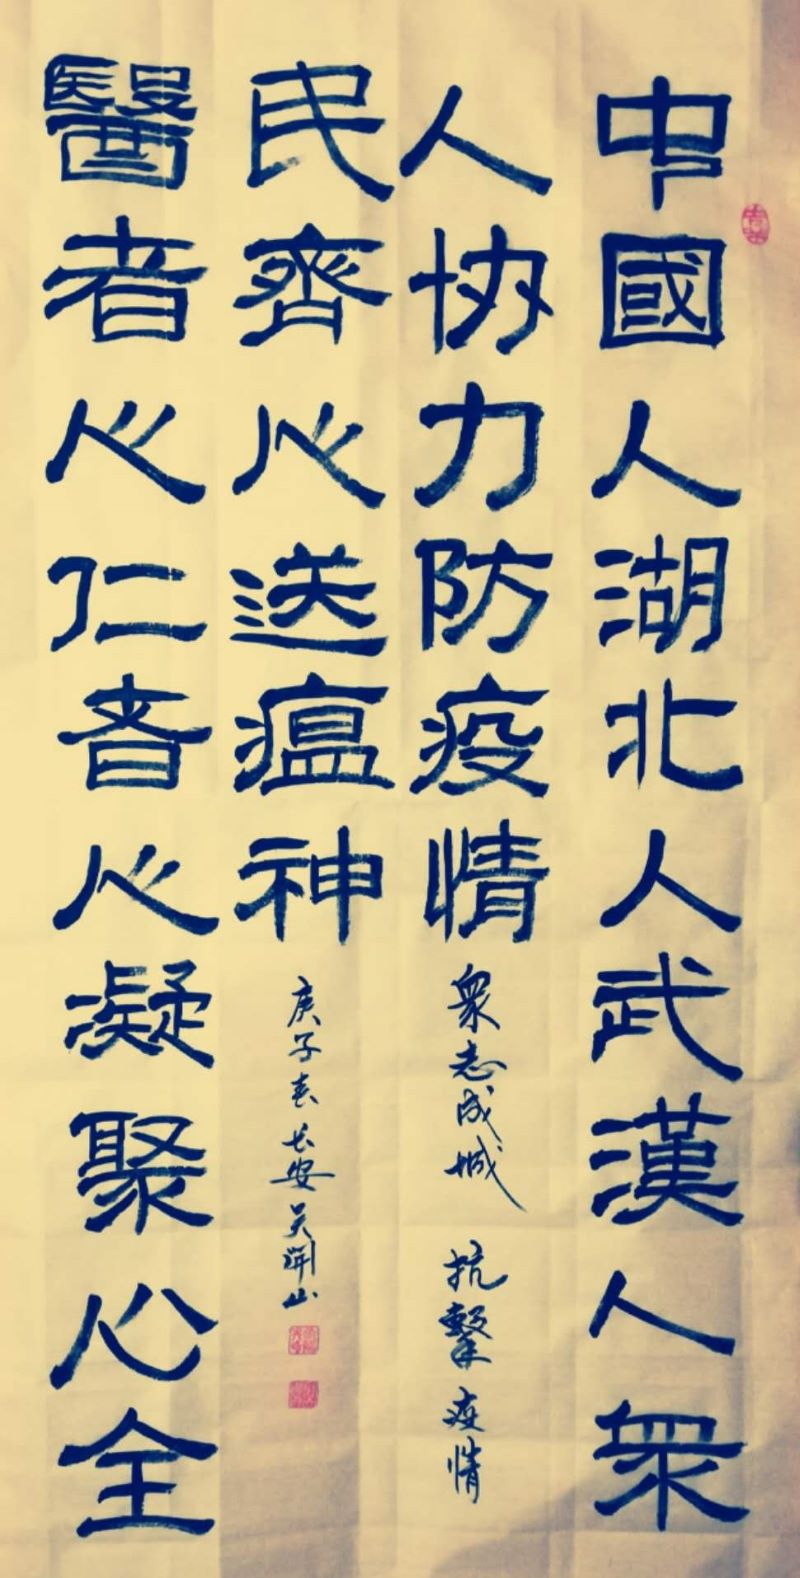 中國人湖北人武漢人衆
人协力防疫情
衆志成城 抗擊疫情
醫者心仁者心凝聚心全
民齊心送瘟神
庚子春长安吴山